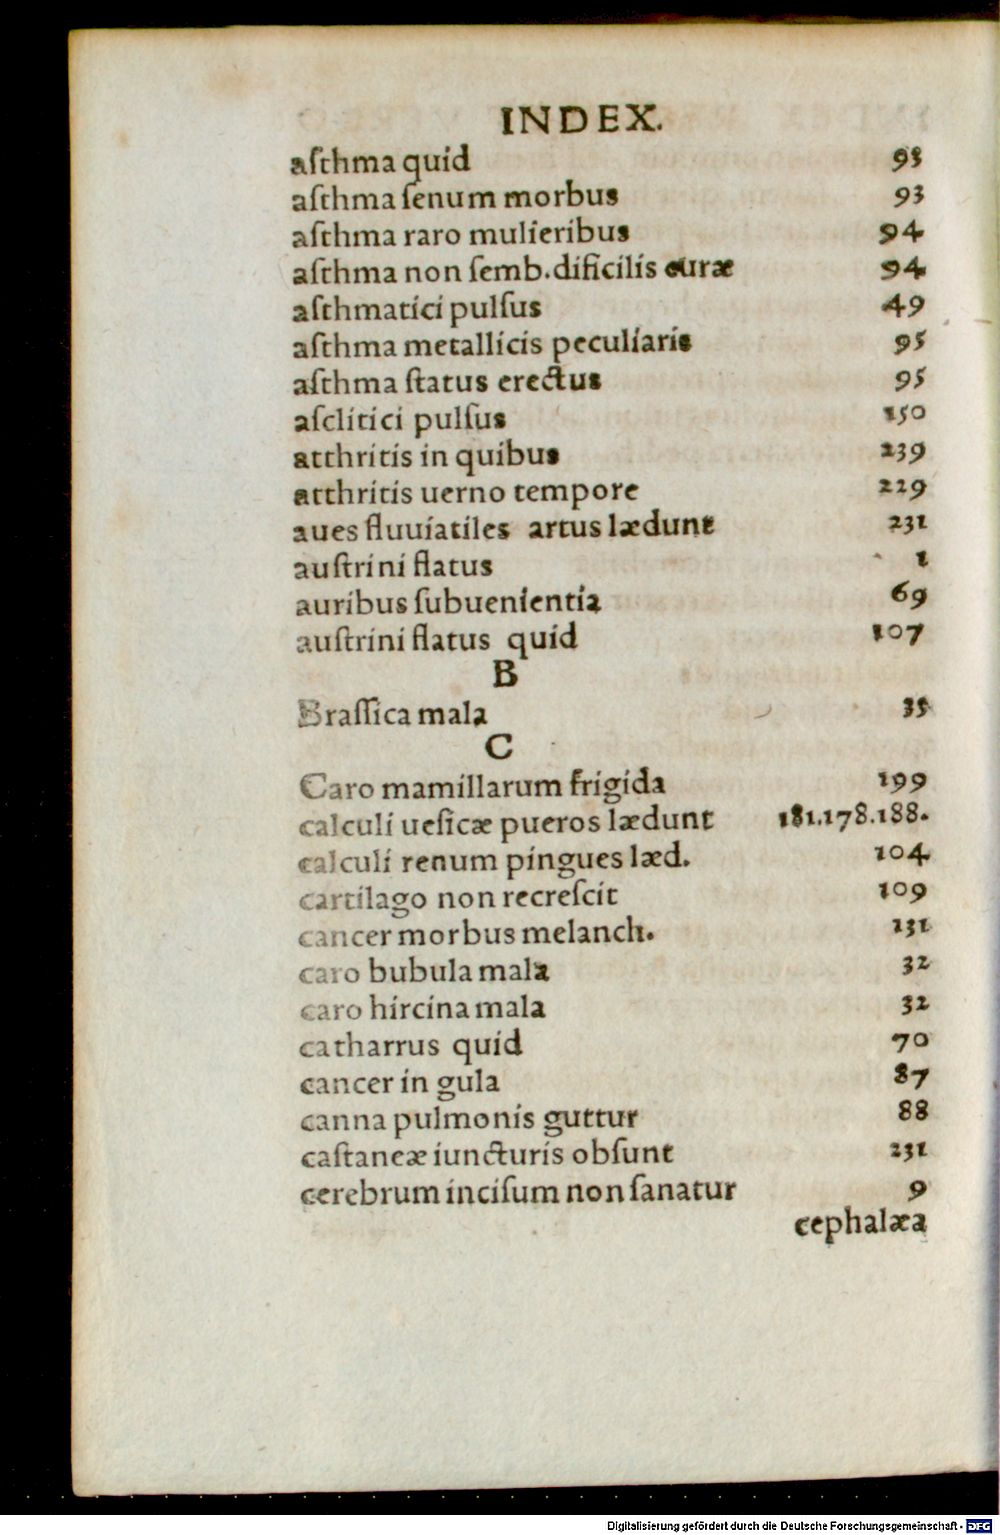 INDEX.
aſthma quid 93
aſthma ſenum morbus 93
aſthma raro mulieribus 94
aſthma non ſemb.dificilis curæ 94
aſthmatici pulſus 49
aſthma metallicis peculiaris 95
aſthma ſtatus erectus 95
aſclitici pulſus 150
atthritis in quibus 239
atthritis uerno tempore 229
aues fluuiatiles artus lædunt 231
auſtrini flatus 1
auribus ſubuenientia 69
auſtrini flatus quid 107
B
Braſſica mala 35
C
Caro mamillarum frigida 199
calculi ueſicæ pueros lædunt 181.178.188.
calculi renum pingues læd. 104
cartilago non recreſcit 109
cancer morbus melanch. 131
caro bubula mala 32
caro hircina mala 32
catharrus quid 70
cancer in gula 87
canna pulmonis guttur 88
caſtaneæ iuncturis obſunt 231
cerebrum inciſum non ſanatur 9
cephalæa
Digitalisierung gefördert durch die Deutsche Forschungsgemeinschaft - DFG